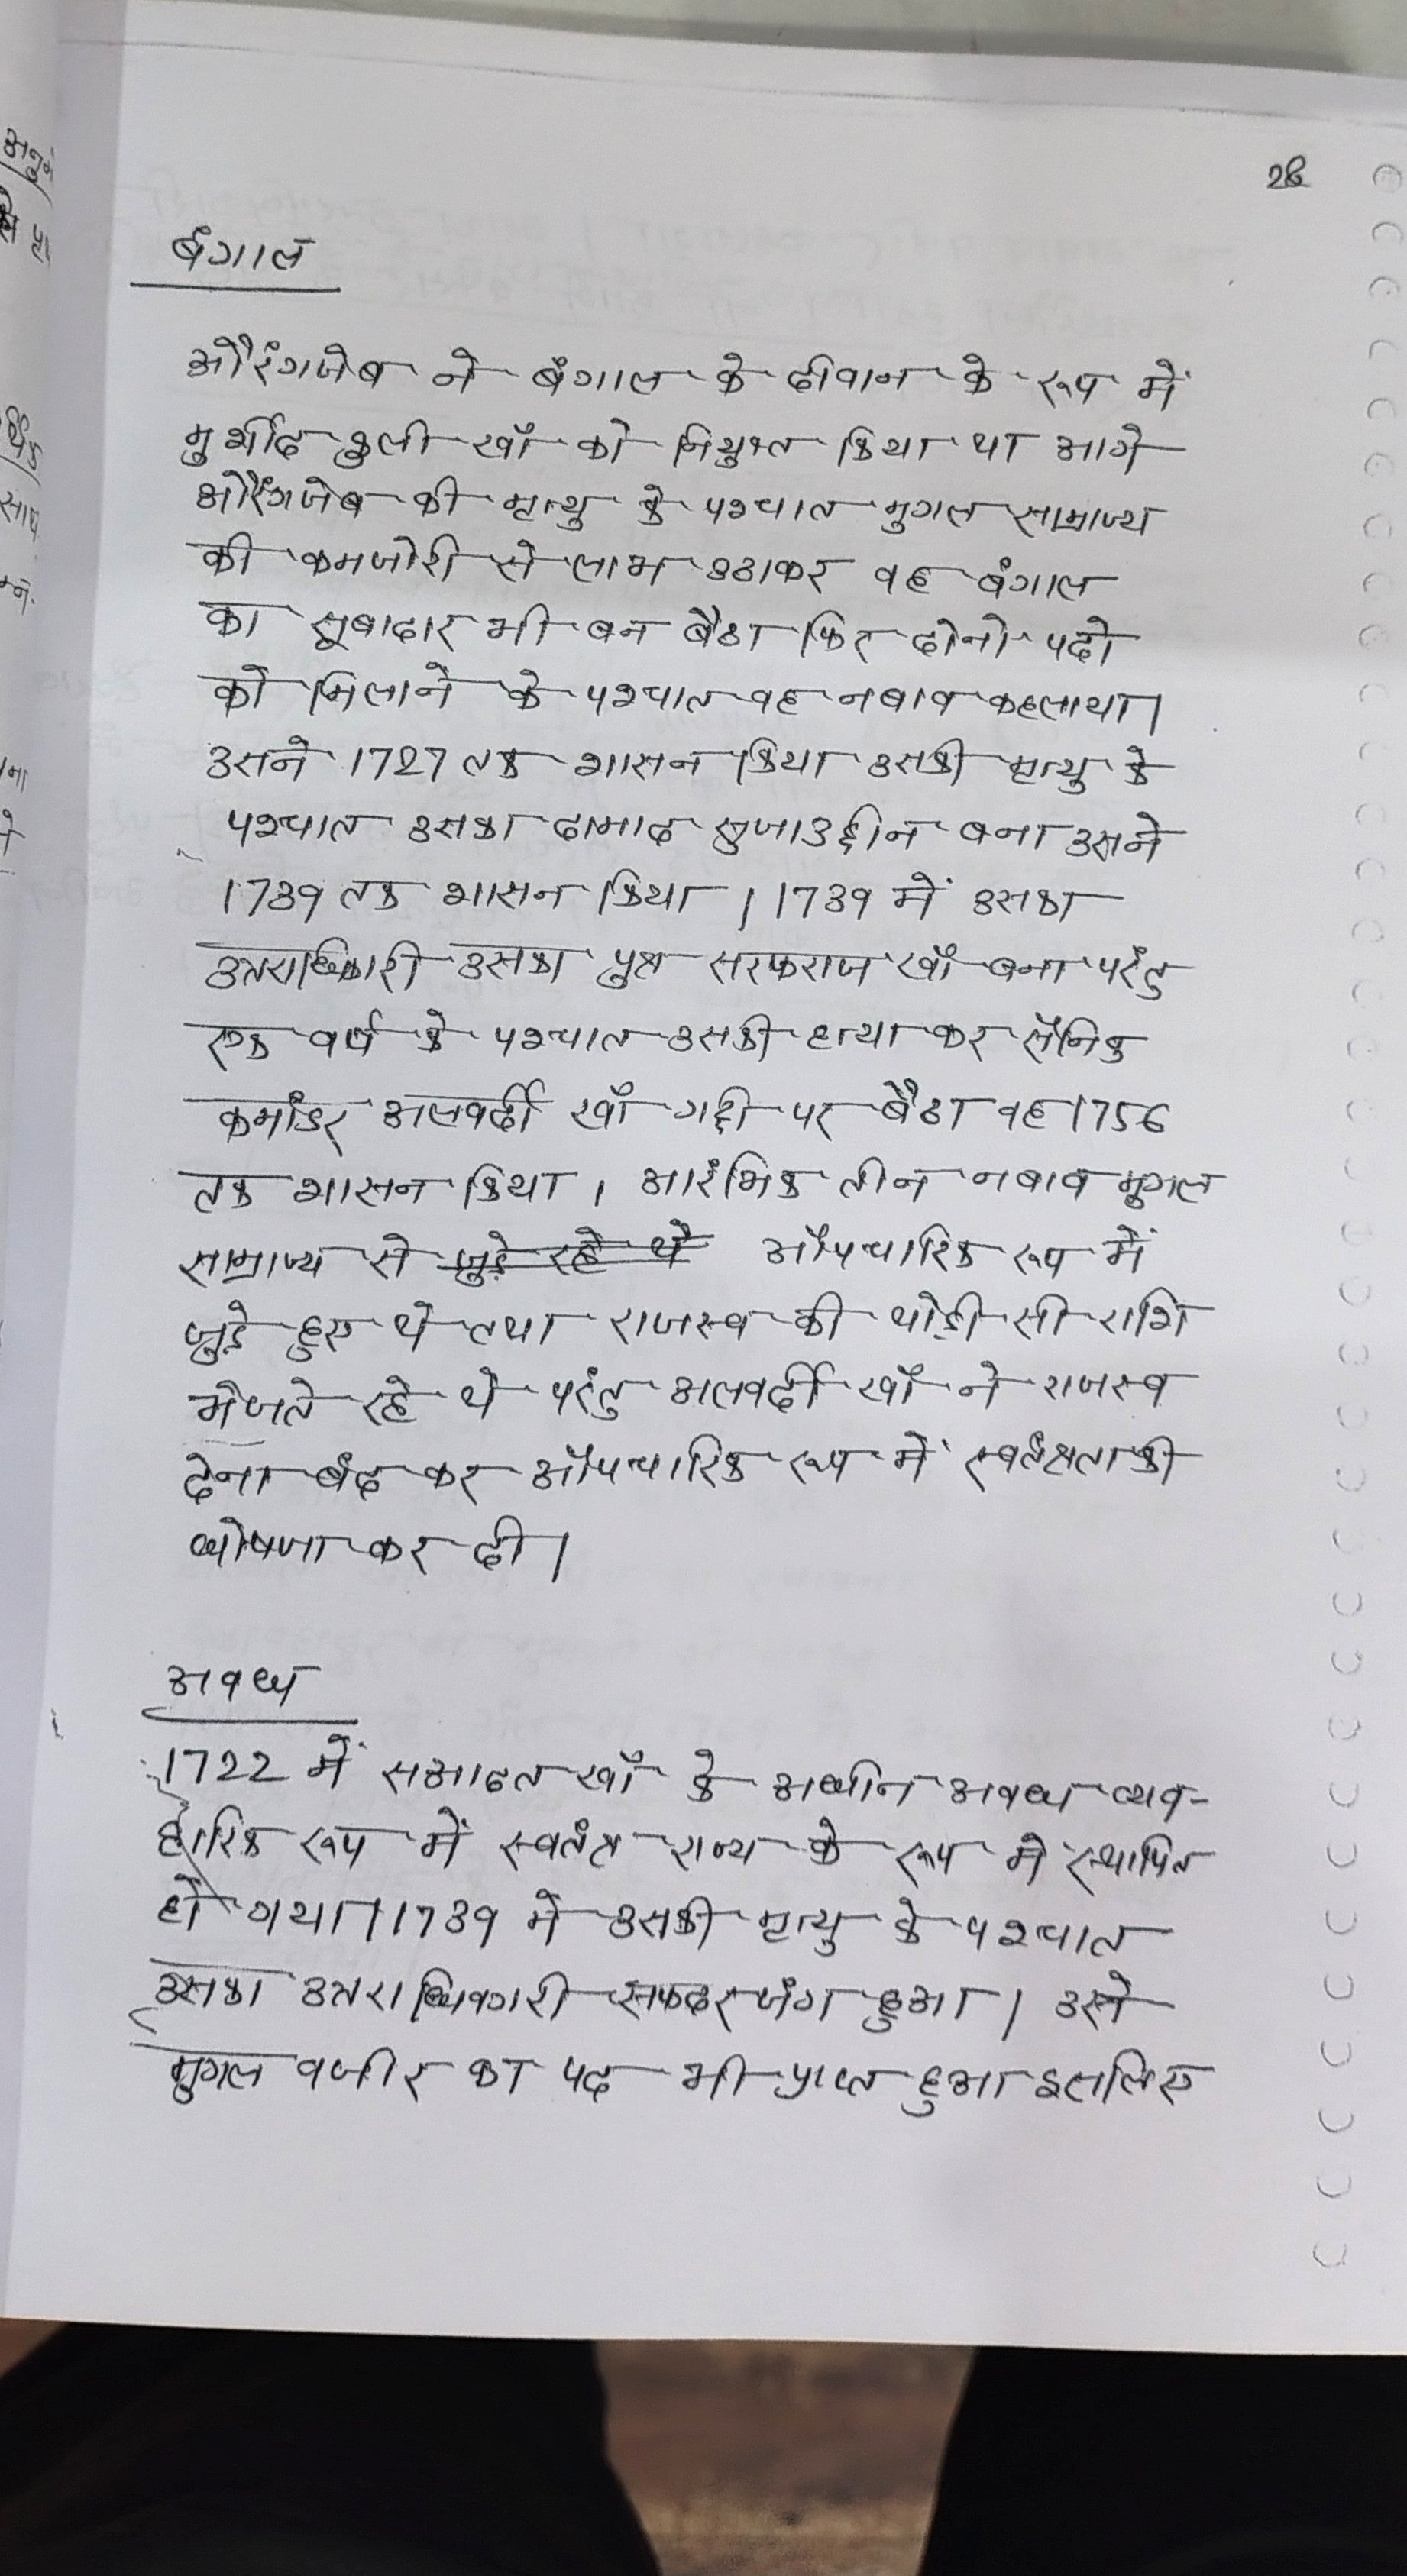 28
बंगाल
औरंगजेब ने बंगाल के दीवान के रूप में
मुर्शीद कुली खाँ को नियुक्त किया था आगे
औरंगजेब की मृत्यु के पश्चात मुगल साम्राज्य
की कमजोरी से लाभ उठाकर वह बंगाल
का सूबादार भी बन बैठा फिर दोनो पदो
को मिलाने के पश्चात वह नबाव कहलाया।
उसने 1727 तक शासन किया उसकी मृत्यु के
पश्चात उसका दामाद सुजाउद्दीन बना उसने
1739 तक शासन किया। 1739 में उसका
उत्तराधिकारी उसका पुत्र सरफराज खाँ बना परंतु
एक वर्ष के पश्चात उसकी हत्या कर सैनिक
कमांडर अलवर्दी खाँ गद्दी पर बैठा वह 1756
तक शासन किया। आरंभिक तीन नबाव मुगल
साम्राज्य से जुड़े रहे थे औपचारिक रूप में
जुड़े हुए थे तथा राजस्व की थोड़ी सी राशि
भेजते रहे थे परंतु अलवर्दी खाँ ने राजस्व
देना बंद कर औपचारिक रूप में स्वतंत्रता की
घोषणा कर दी।
अवध
1722 में सआदत खाँ के अधीन अवध व्यव-
हारिक रूप में स्वतंत्र राज्य के रूप मे स्थापित
हो गया। 1739 मे उसकी मृत्यु के पश्चात
उसका उत्तराधिकारी सफदर जंग हुआ। उसे
मुगल वजीर का पद भी प्राप्त हुआ इसलिए